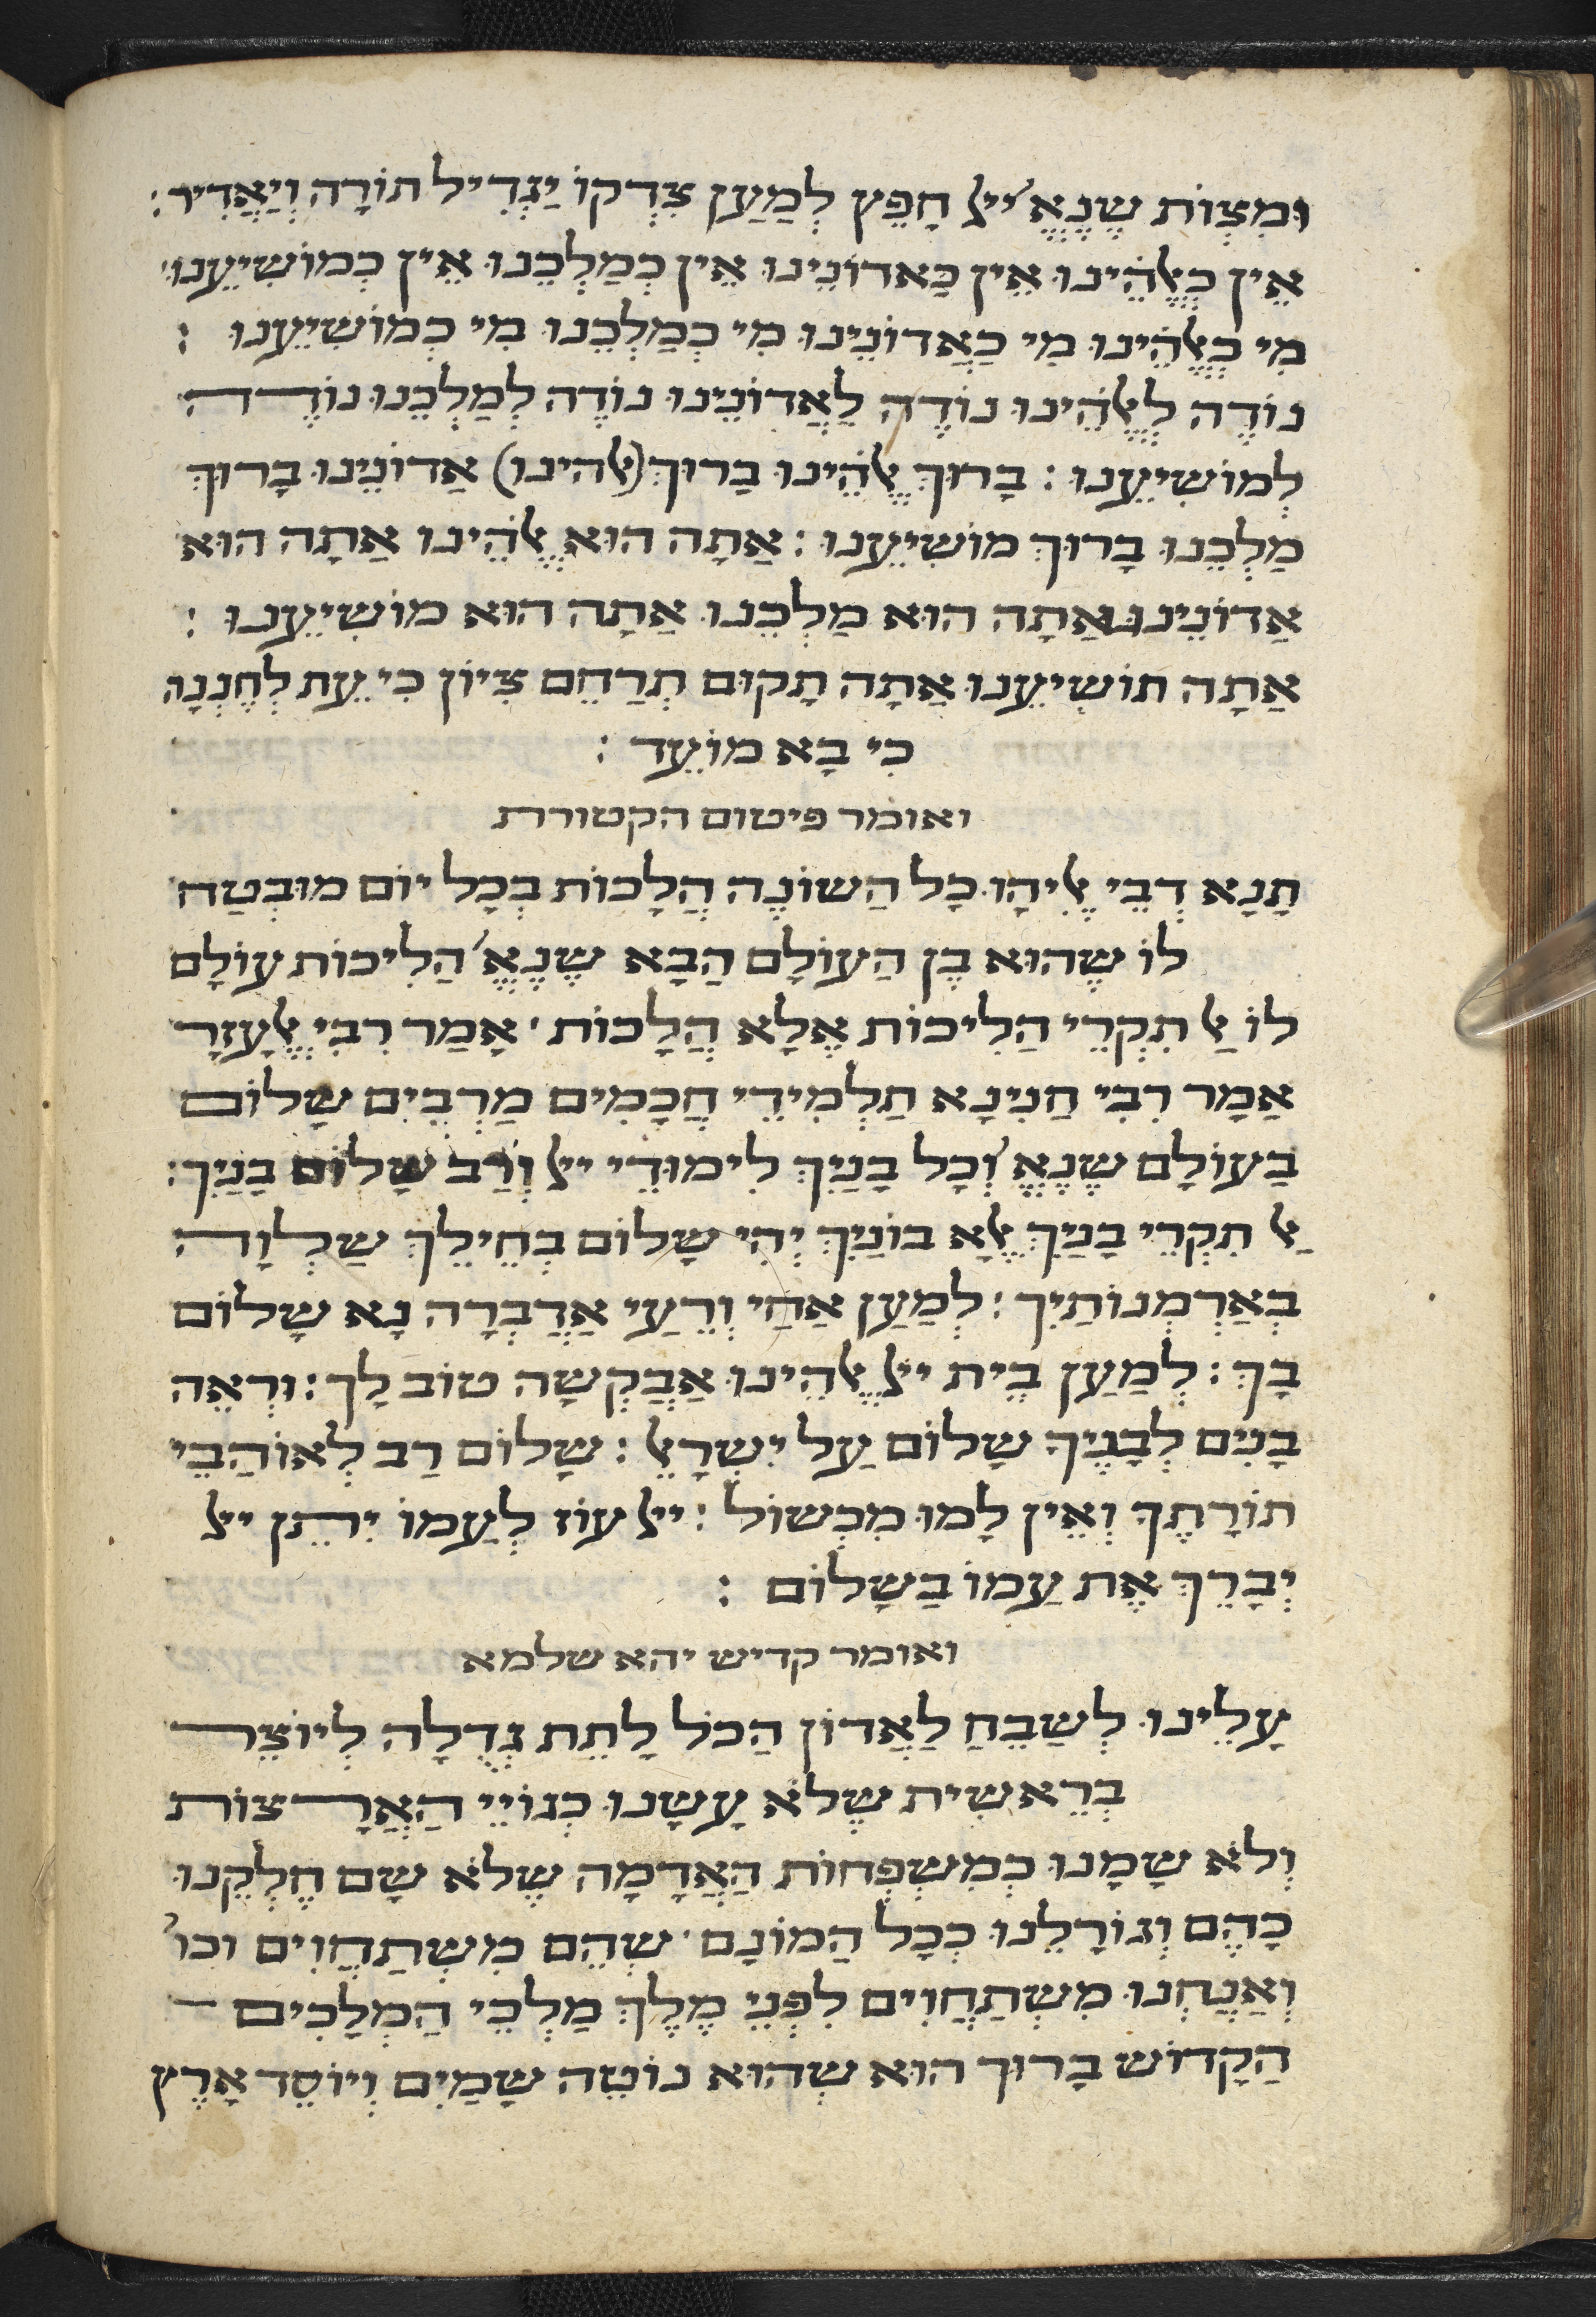 וּמִצְוֹת שֶׁנֶאֱ' ייל חָפֵץ לְמַעַן צִדְקוֹ יַגְדִיל תוֹרָה וְיַאֲדִיר:
אֵין כֵאלֹהֵינוּ אֵין כַּאדוֹנֵינוּ אֵין כְמַלְכֵנוּ אֵין כְמוֹשִיעֵנוּ
מִי כֵאלֹהֵינוּ מִי כַאֲדוֹנֵינוּ מִי כְמַלְכֵנוּ מִי כְמוֹשִיעֵנוּ :
נוֹדֶה לֵאלֹהֵינוּ נוֹדֶה לַאֲדוֹנֵינוּ נוֹדֶה לְמַלְכֵנוּ נוֹדֶה
לְמוֹשִיעֵנוּ : בָרוּךְ אֱלֹהֵינוּ בָרוּךְ (אלהינו) אֲדוֹנֵינוּ בָרוּךְ
מַלְכֵנוּ בָרוּךְ מוֹשִיעֵנוּ : אַתָה הוּא אֱלֹהֵינוּ אַתָה הוּא
אֲדוֹנֵינוּ אַתָה הוּא מַלְכֵנוּ אַתָה הוּא מוֹשִיעֵנוּ :
אַתָה תוֹשִיעֵנוּ אַתָה תָקוּם תְרַחֵם צִיוֹן כִי עֵת לְחֶנְנָהּ
כִי בָא מוֹעֵד :
ואומר פיטום הקטורת
תָנָא דְבֵי אֵלִיָהוּ כָל הַשוֹנֶה הֲלָכוֹת בְכָל יוֹם מוּבְטַח
לוֹ שֶהוּא בֶן הָעוֹלָם הַבָא שֶנֶאֱ' הַלִיכוֹת עוֹלָם
לוֹ אַל תִקְרֵי הַלִיכוֹת אֶלָא הֲלָכוֹת ' אָמַר רִבִי אֶלְעָזָר
אָמַר רִבִי חֲנִינָא תַלְמִידֵי חֲכָמִים מַרְבִים שָלוֹם
בָעוֹלָם שֶנֶאֱ' וְכָל בָנַיִךְ לִימוּדֵי ייל וְרַב שָלוֹם בָנַיִךְ:
אַל תִקְרֵי בָנַיִךְ אֶלָא בוֹנַיִךְ יְהִי שָלוֹם בְחֵילֵךְ שַלְוָה
בְאַרְמְנוֹתַיִךְ : לְמַעַן אַחַי וְרֵעַי אֲדַבְרָה נָא שָלוֹם
בָךְ : לְמַעַן בֵית ייל אֱלֹהֵינוּ אֲבַקְשָה טוֹב לָךְ : וּרְאֵה
בָנִים לְבָנֶיךָ שָלוֹם עַל יִשְרָאֵל : שָלוֹם רַב לְאוֹהֲבֵי
תוֹרָתֶךָ וְאֵין לָמוֹ מִכְשוֹל : ייל עוֹז לְעַמוֹ יִתֵן ייל
יְבָרֵךְ אֶת עַמוֹ בַשָלוֹם :
ואומר קדיש יהא שלמא
עָלֵינוּ לְשַבֵחַ לַאֲדוֹן הַכֹל לָתֵת גְדֻלָה לְיוֹצֵר
בְרֵאשִית שֶלֹא עָשָנוּ כְגוֹיֵי הָאֲרָצוֹת
וְלֹא שָמָנוּ כְמִשְפְחוֹת הָאֲדָמָה שֶלֹא שָם חֶלְקֵנוּ
כָהֶם וְגוֹרָלֵנוּ כְכָל הֲמוֹנָם ' שֶהֵם מִשְתַחֲוִים וכו'
וַאֲנַחְנוּ מִשְתַחֲוִים לִפְנֵי מֶלֶךְ מַלְכֵי הַמְלָכִים
הַקָדוֹש בָרוּך הוּא שְהוּא נוֹטֶה שָמַיִם וְיוֹסֵד אָרֶץ